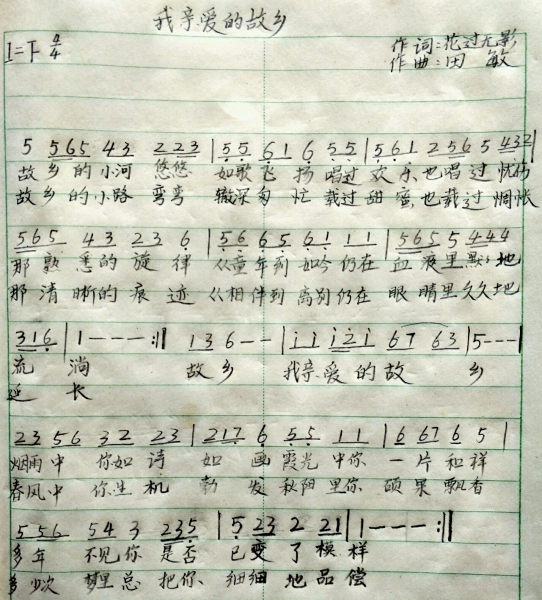 我亲爱的故乡
作词:花过无影
1=F 4/4
作曲:田 敏
5 565 43 223 | 55 61 6 55 | 561 256 5 432 |
故乡的小河 悠悠 如歌飞扬 唱过欢乐,也唱过忧伤
故乡的小路 弯弯 辙深匆忙 载过甜蜜,也载过惆怅
565 43 23 6 | 56 65 61 11 | 565 5 444
那熟悉的旋律 从童年到如今仍在血液里默默地
那清晰的痕迹 从相伴到离别仍在眼睛里久久地
316 | 1--- :|| 136-- | i i i2i 67 63 | 5---|
流淌 故乡 我亲爱的故乡
延长
23 56 32 23 | 217 6 55 11 | 6 67 6 5 |
烟雨中 你如诗 如画 霞光中你 一片和祥
春风中 你生机 勃发 秋阳里你 硕果飘香
5 56 54 3 235 | 5 23 2 21 | 1--- :||
多年 不见你 是否 已变了模样
多少次 梦里总 把你 细细地品偿